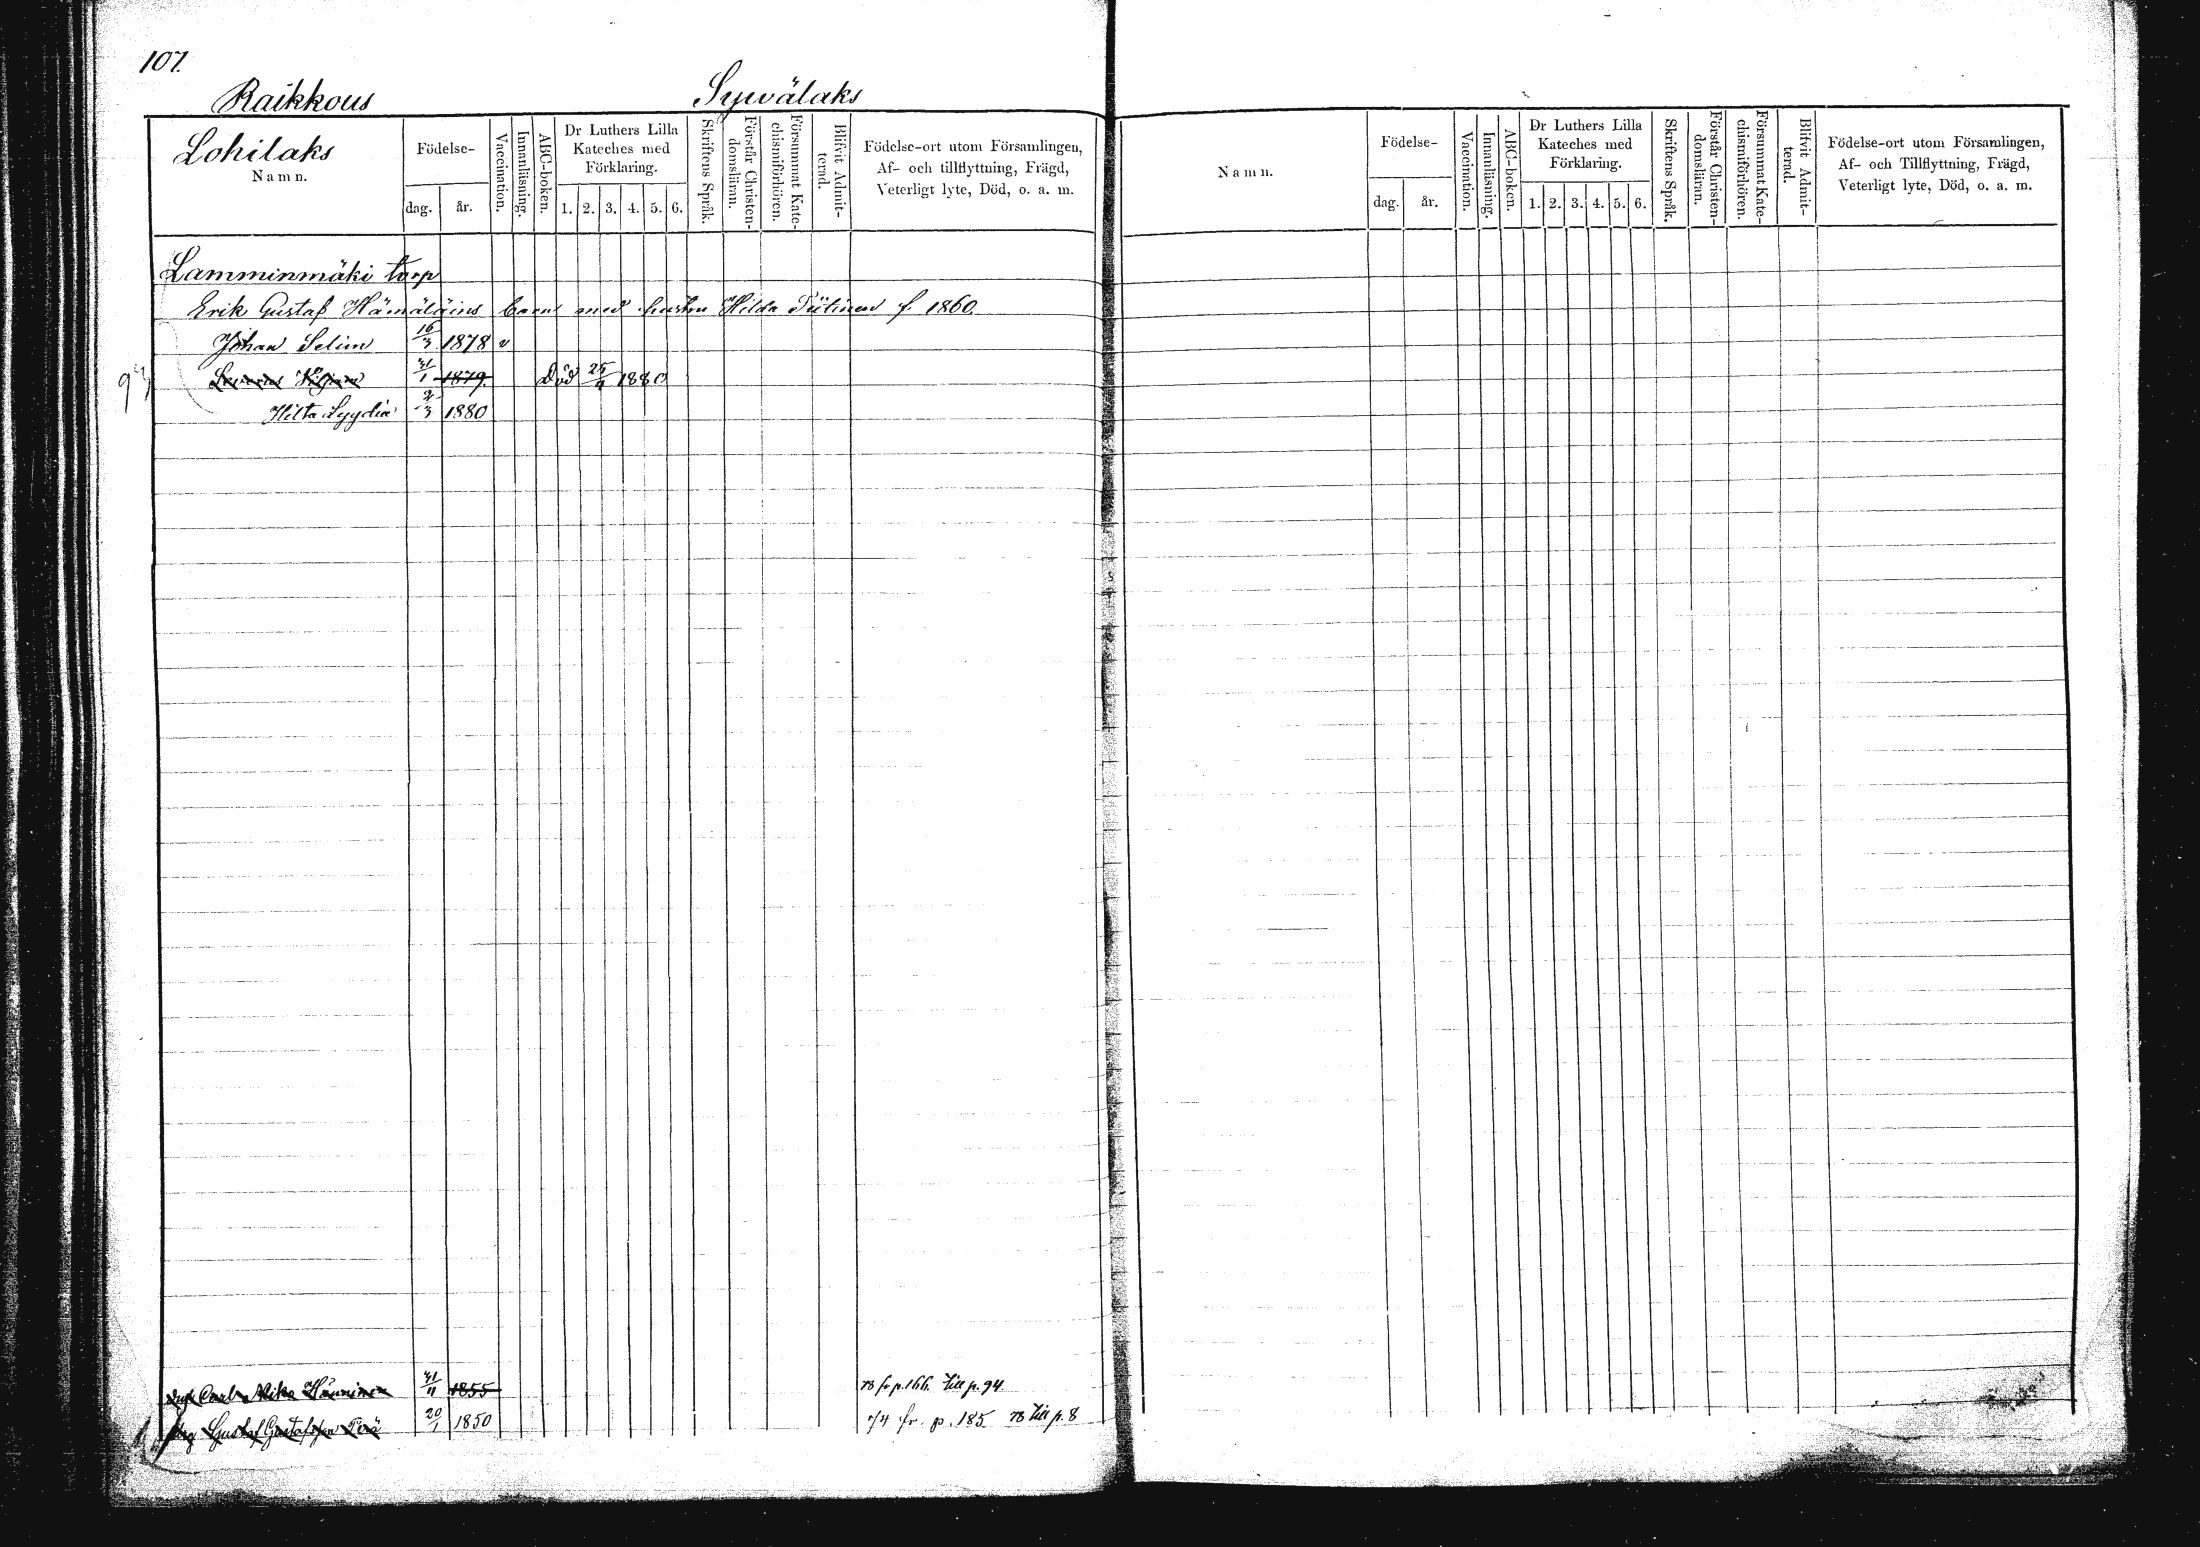 107.
Raikkous Sywälaks
Lohilaks
Namn.
Födelse-
dag. år.
Vaccination.
Innanläsning.
ABC-boken.
Dr Luthers Lilla
Kateches med
Förklaring.
1. 2. 3. 4. 5. 6.
Skriftens Språk.
Förstår Christen-
domsläran.
Försummat Kate-
chismiförhören.
Blifvit Admit-
terad.
Födelse-ort utom Församlingen,
Af- och tillflyttning, Frägd,
Veterligt lyte, Död, o. a. m.
Lamminmäki torp
Erik Gustaf Hämäläins barn med hustru Hilda f. 1860.
Johan Selim 16/3 1878 v
31/1 1879 Död 25/4 1880
Hilta Lyydia 2/3 1880
31/11 1855 78 fr p. 166. Till p. 94
Gustaf Gustafsson Terä 20/1 1850 fr. p. 185 78 Till p. 8
Namn.
Födelse-
dag. år.
Vaccination.
Innanläsning.
ABC-boken.
Dr Luthers Lilla
Kateches med
Förklaring.
1. 2. 3. 4. 5. 6.
Skriftens Språk.
Förstår Christen-
domsläran.
Försummat Kate-
chismiförhören.
Blifvit Admit-
terad.
Födelse-ort utom Församlingen,
Af- och Tillflyttning, Frägd,
Veterligt lyte, Död, o. a. m.